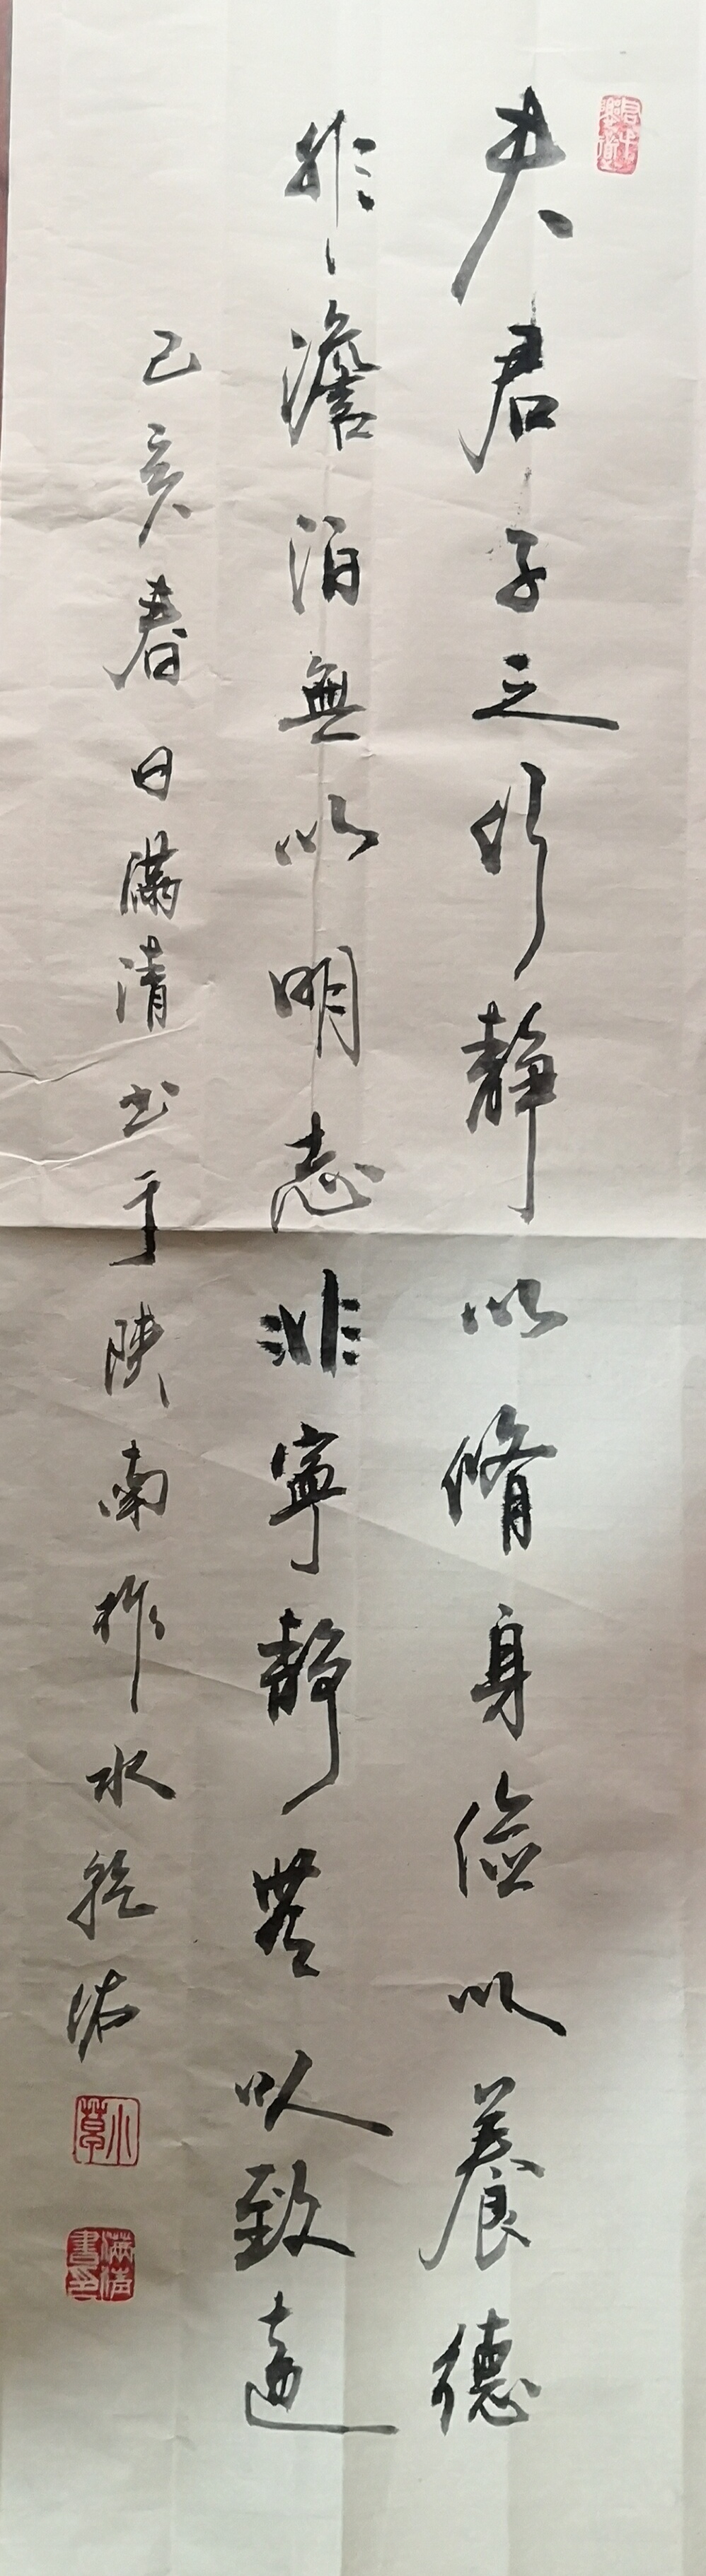 夫君子之行靜以脩身儉以養德
非澹泊無以明志非寧靜無以致遠
己亥春日滿清書于陝南柞水乾祐
小草
滿清書印